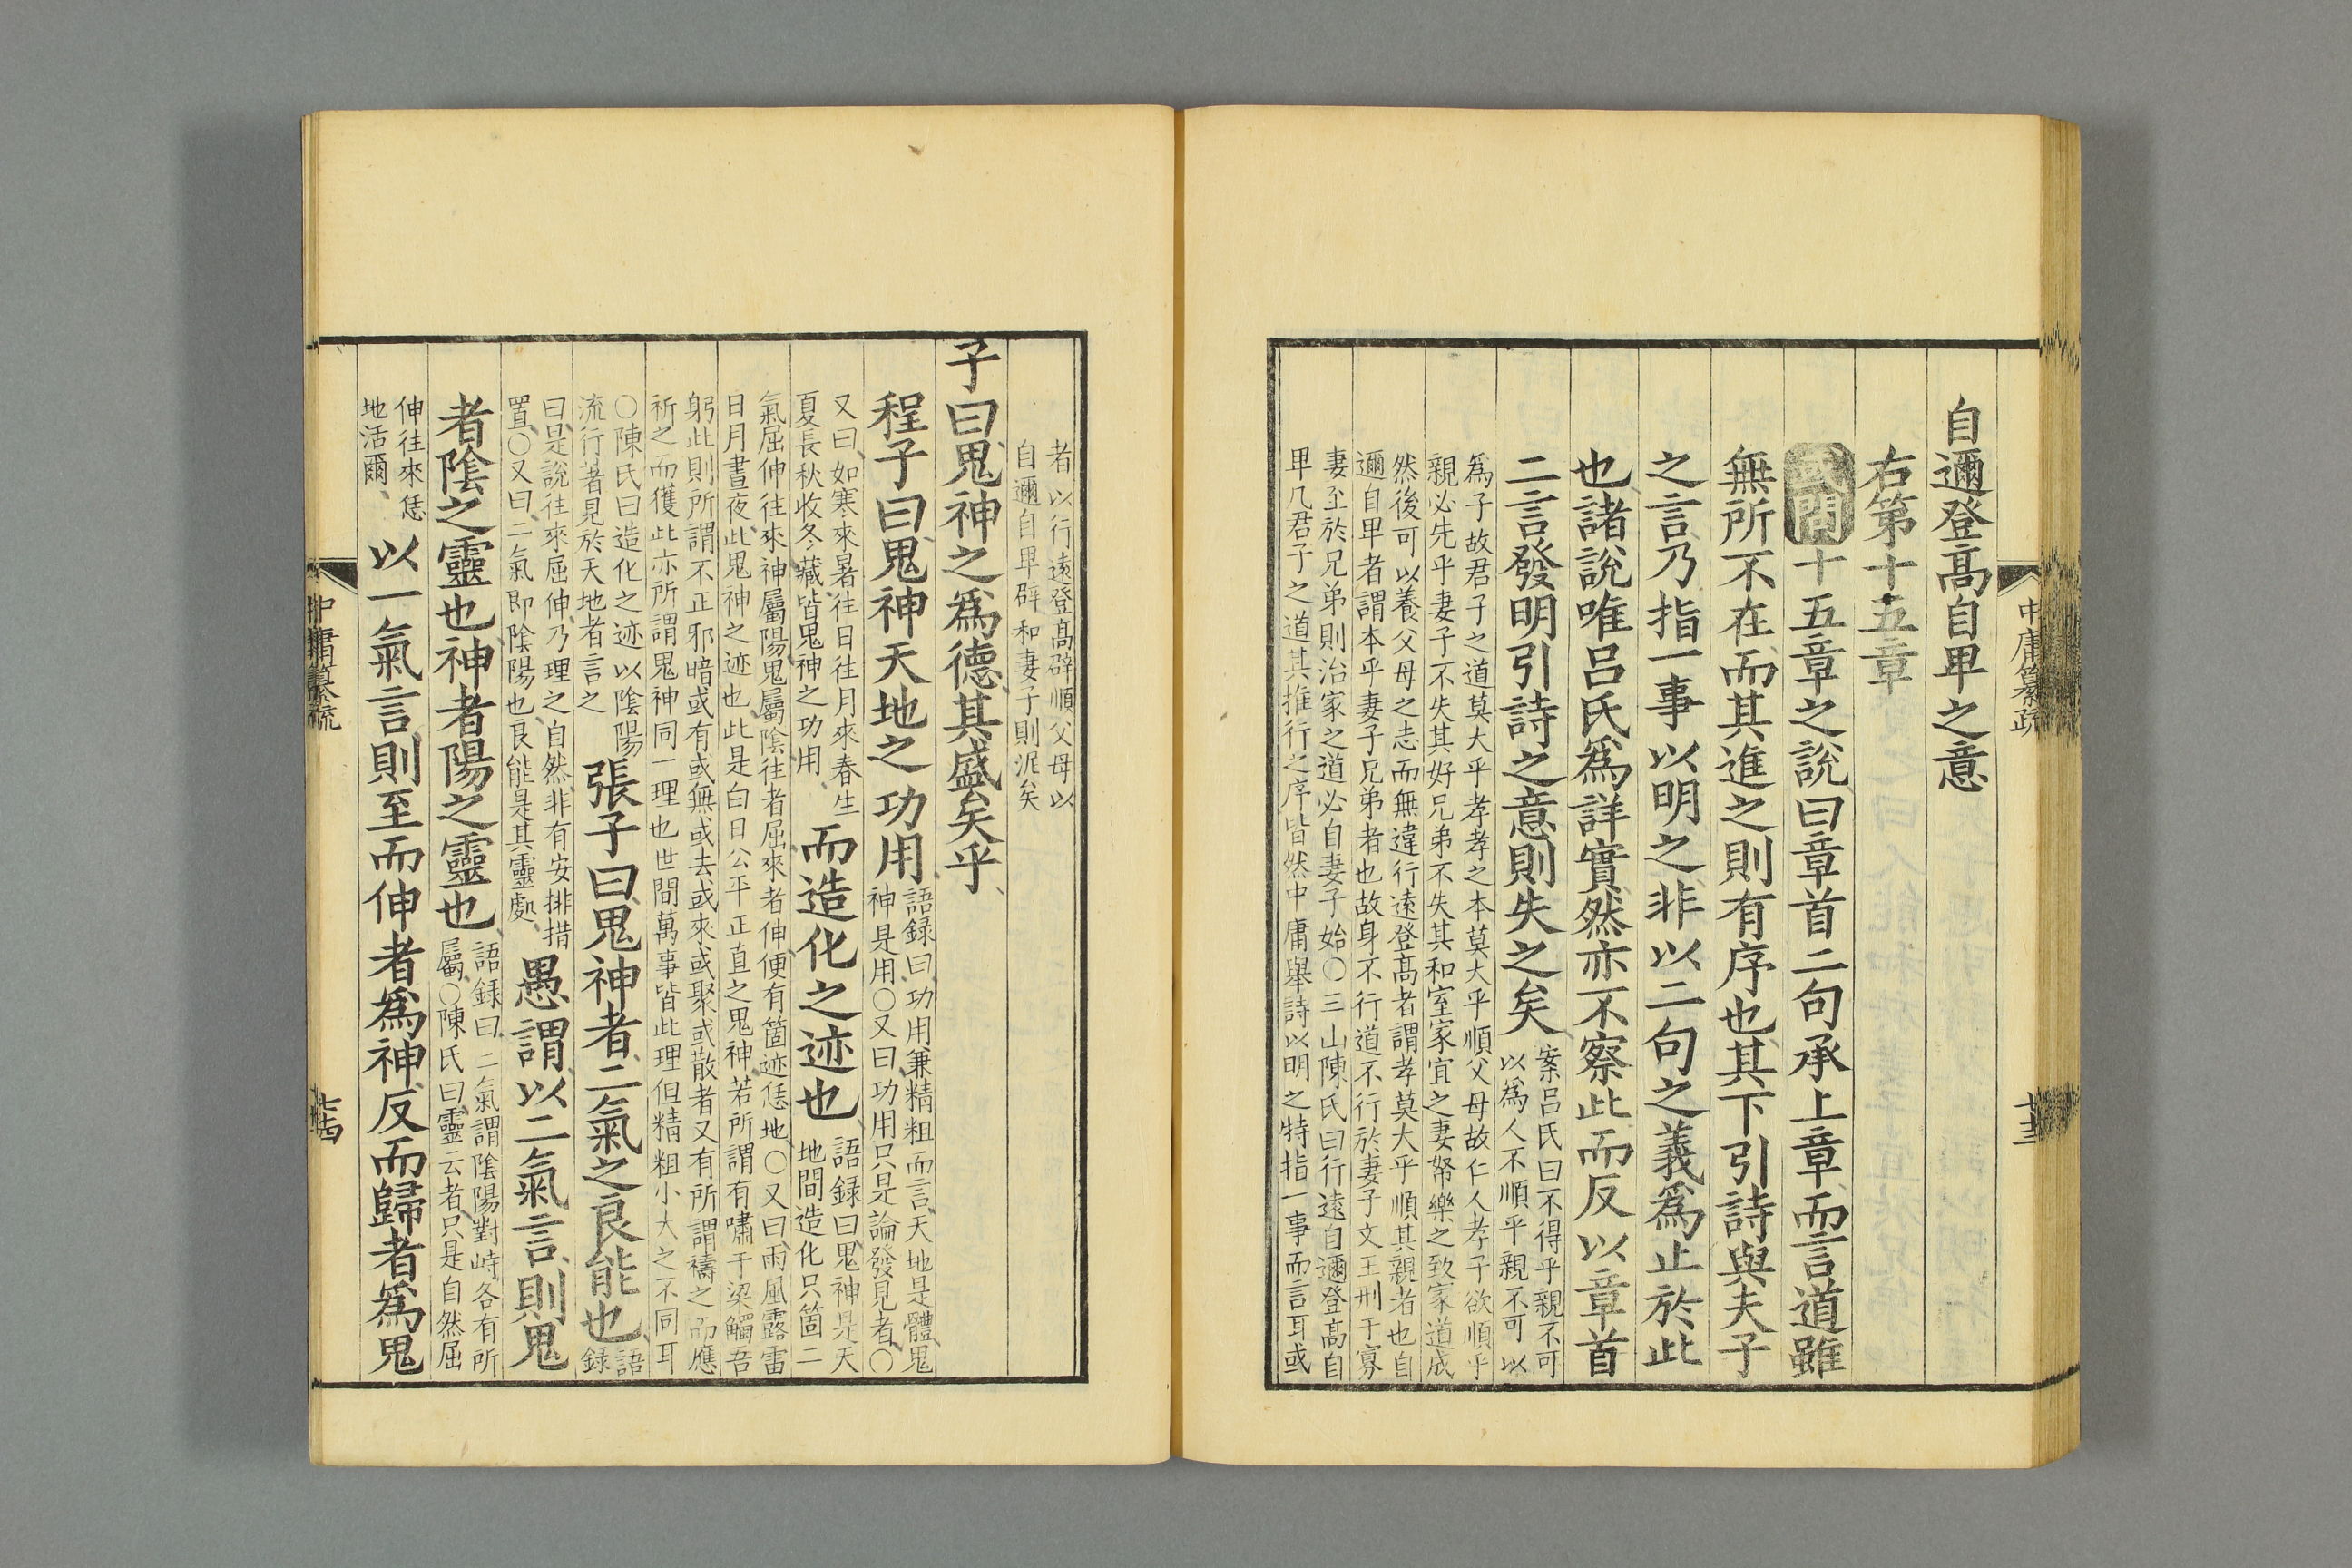 中庸纂疏
七十三
自邇登髙自卑之意
右第十五章
或問十五章之說曰章首二句承上章而言道雖
無所不在而其進之則有序也其下引詩與夫子
之言乃指一事以明之非以二句之義爲止於此
也諸說唯呂氏爲詳實然亦不察此而反以章首
二言發明引詩之意則失之矣
案呂氏曰不得乎親不可
以爲人不順乎親不可以
爲子故君子之道莫大乎孝孝之本莫大乎順父母故仁人孝子欲順乎
親必先乎妻子不失其好兄弟不失其和室家宜之妻帑樂之致家道成
然後可以養父母之志而無違行遠登髙者謂孝莫大乎順其親者也自
邇自卑者謂本乎妻子兄弟者也故身不行道不行於妻子文王刑于寡
妻至於兄弟則治家之道必自妻子始○三山陳氏曰行遠自邇登髙自
卑凡君子之道其推行之序皆然中庸舉詩以明之特指一事而言耳或
者以行遠登髙辟順父母以
自邇自卑辟和妻子則泥矣
子曰鬼神之爲德其盛矣乎
程子曰鬼神天地之功用
語録曰功用兼精粗而言天地是體鬼
神是用○又曰功用只是論發見者○
又曰如寒來暑往日往月來春生
夏長秋收冬藏皆鬼神之功用
而造化之迹也
語録曰鬼神是天
地間造化只箇二
氣屈伸往來神屬陽鬼屬陰往者屈來者伸便有箇迹恁地○又曰雨風露雷
日月晝夜此鬼神之迹也此是白日公平正直之鬼神若所謂有嘯于梁觸吾
躬此則所謂不正邪暗或有或無或去或來或聚或散者又有所謂禱之而應
祈之而獲此亦所謂鬼神同一理也世間萬事皆此理但精粗小大之不同耳
○陳氏曰造化之迹以陰陽
流行著見於天地者言之
張子曰鬼神者二氣之良能也
語
録
曰是說往來屈伸乃理之自然非有安排措
置○又曰二氣即陰陽也良能是其靈處
愚謂以二氣言則鬼
者陰之靈也神者陽之靈也
語録曰二氣謂陰陽對峙各有所
屬○陳氏曰靈云者只是自然屈
伸往來恁
地活爾
以一氣言則至而伸者爲神反而歸者爲鬼
中庸纂疏
七十四